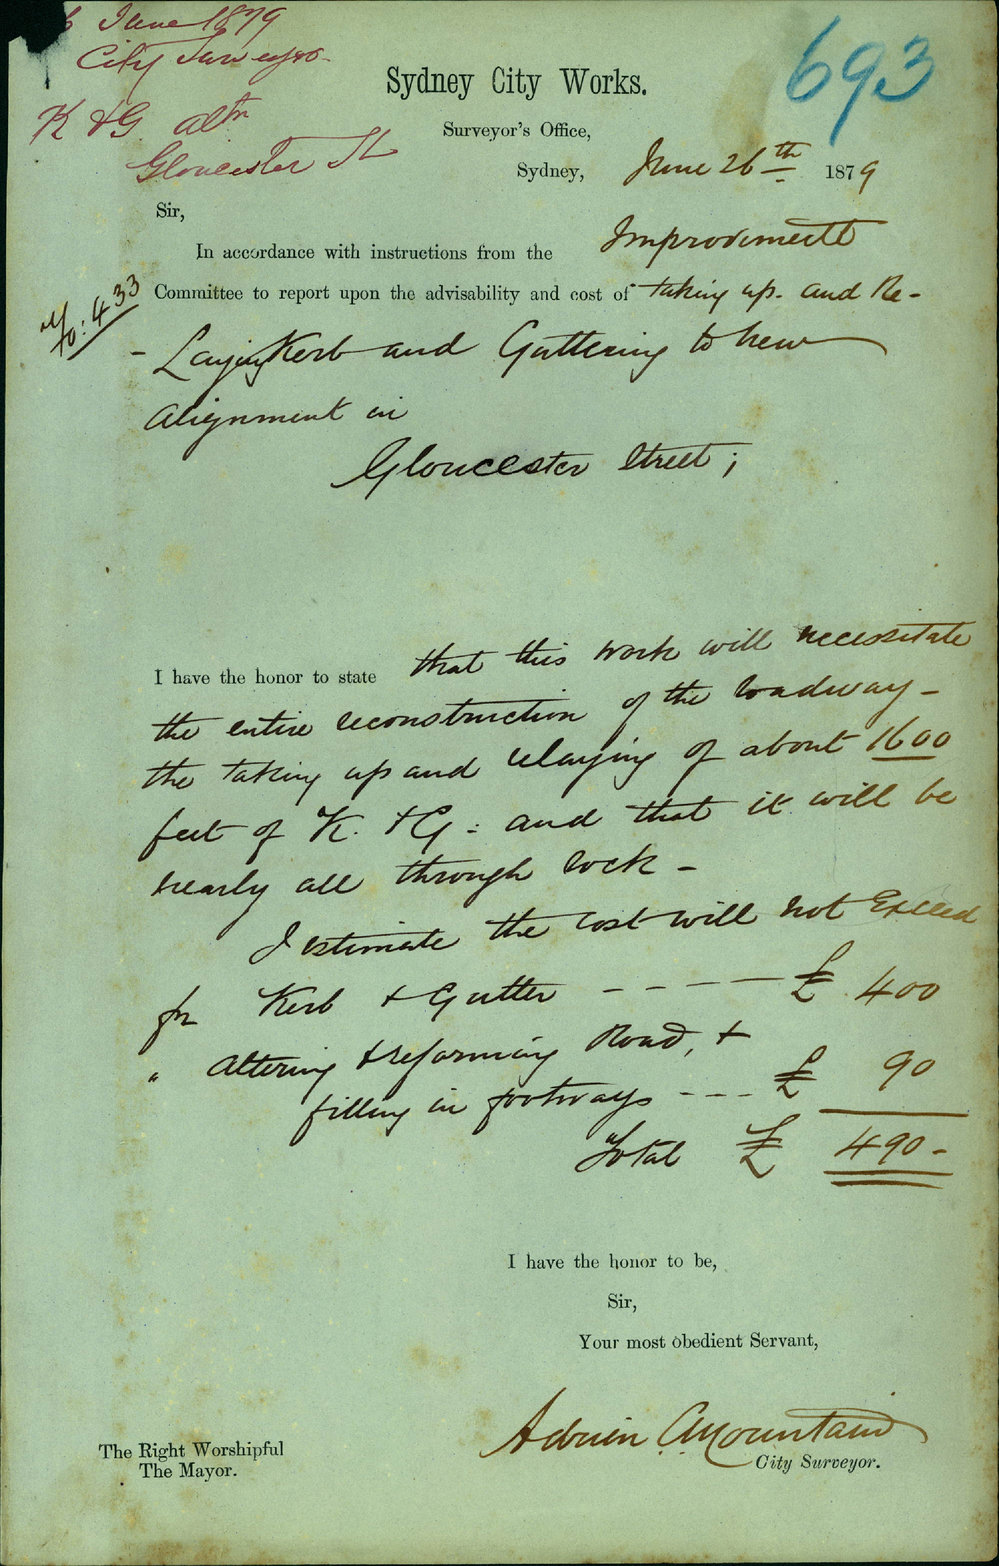 6 June 1879
City Surveyor
693
K & G altn
Gloucester St
Sydney City Works.
Surveyor's Office,
Sydney, June 26th 1879
Sir,
In accordance with instructions from the Improvements
Committee to report upon the advisability and cost of taking up. and Re-
No: 433
- Laying Kerb and Guttering to new
alignment in
Gloucester Street;
I have the honor to state that this work will necessitate
the entire reconstruction of the roadway -
the taking up and relaying of about 1600
feet of K. & G: and that it will be
nearly all through rock -
I estimate the cost will not Exceed
for Kerb & Gutter - - - - - £ 400
" altering & reforming Road, &
filling in footways - - - - £ 90
Total £ 490 -
I have the honor to be,
Sir,
Your most obedient Servant,
Adrien C. Mountain
City Surveyor.
The Right Worshipful
The Mayor.